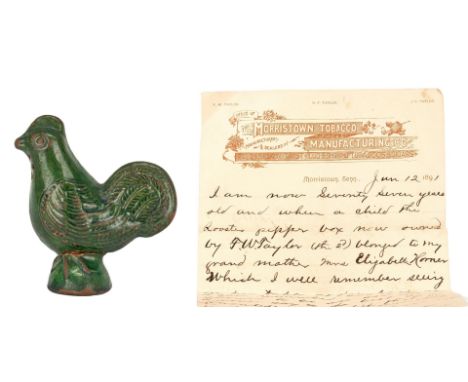 OFFICE OF
THE MORRISTOWN TOBACCO
MANUFACTURING CO.
MANUFACTURERS
& DEALERS IN
Morristown, Tenn. Jun 12 1891
I am now Seventy Seven years
old and when a child the
Rooster pepper box now owned
by F W Taylor blonged to my
grand mother Mrs Elizabeth Horner
Which I well remember seeing